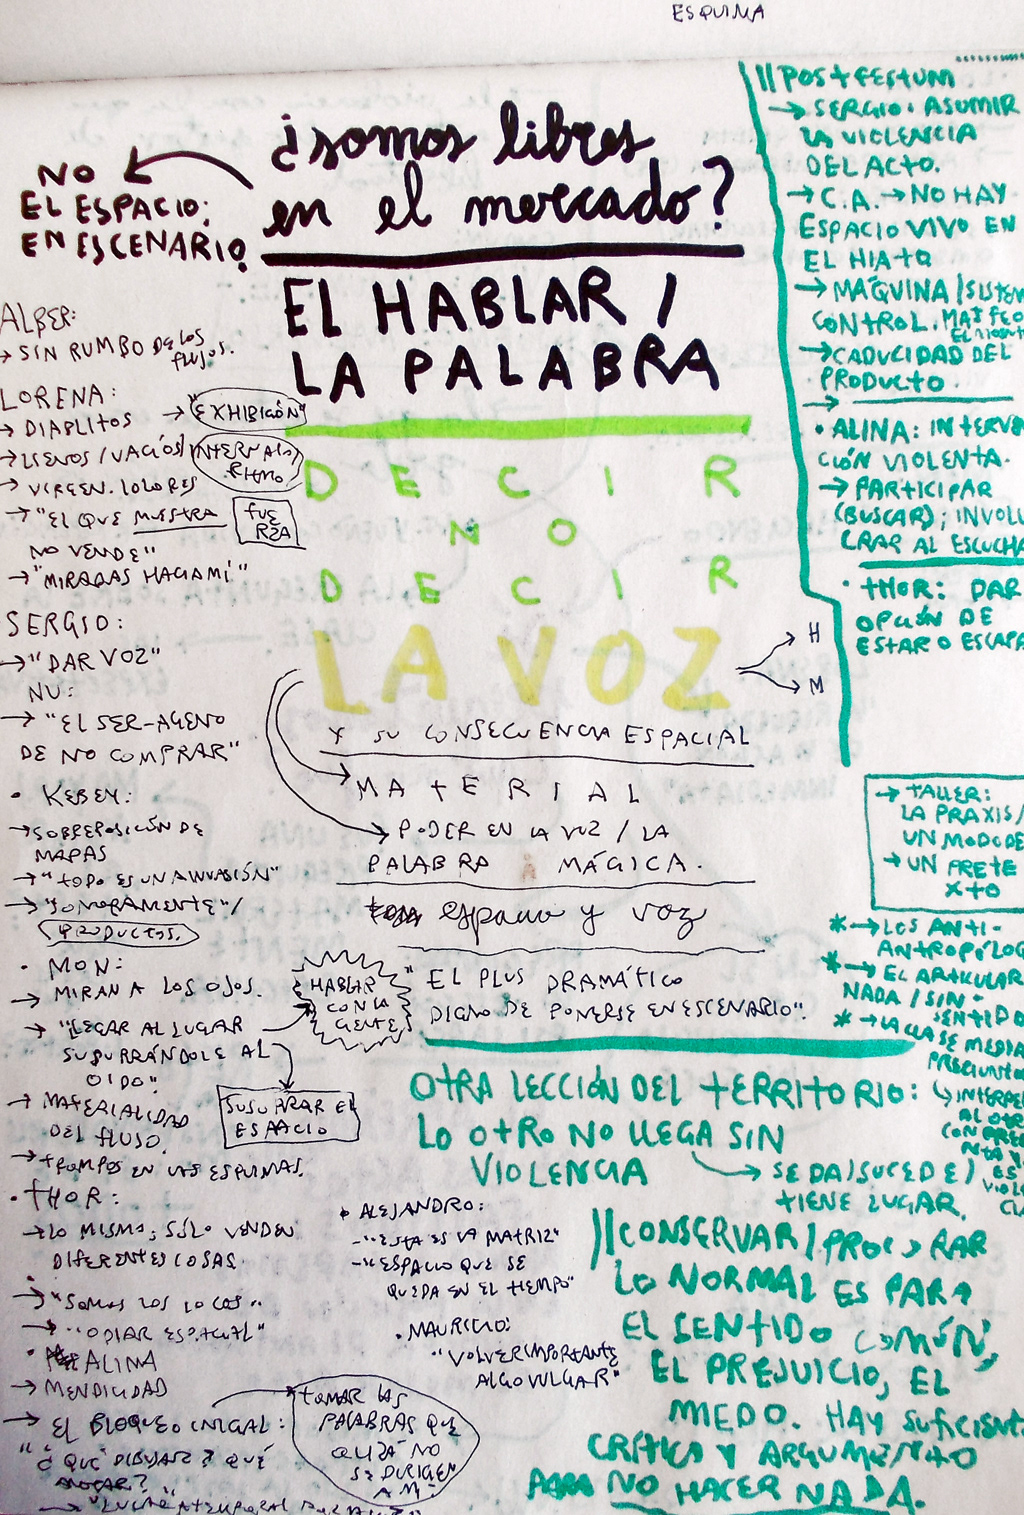 ESQUINA
¿somos libres
en el mercado?
NO
EL ESPACIO;
EN ESCENARIO
EL HABLAR /
LA PALABRA
DECIR
NO
DECIR
LA VOZ
→ H
→ M
Y SU CONSECUENCIA ESPACIAL
MATERIAL
PODER EN LA VOZ / LA
PALABRA MÁGICA.
espacio y voz
"EL PLUS DRAMÁTICO
DIGNO DE PONERSE EN ESCENARIO".
ALBER:
→ SIN RUMBO DE LOS
FLUJOS.
LORENA:
→ DIABLITOS
→ "EXHIBICIÓN"
→ LLENOS / VACÍOS /
INTERVALOS/
RITMO.
→ VIRGEN. DOLORES
→ "EL QUE MUESTRA
NO VENDE"
FUE
RZA
→ "MIRADAS HACIA MÍ"
SERGIO:
→ "DAR VOZ"
NU:
→ "EL SER-AGENO
DE NO COMPRAR"
• KEBEY:
→ SOBREPOSICIÓN DE
MAPAS
→ "TODO ES UNA INVASIÓN"
→ "SONORAMENTE"/
PRODUCTOS.
• MON:
→ MIRAN A LOS OJOS.
→ "LLEGAR AL LUGAR
SUSURRÁNDOLE AL
OIDO"
HABLAR
CON LA
GENTE
SUSURRAR EL
ESPACIO
→ MATERIALIDAD
DEL FLUJO.
→ TROMPOS EN LAS ESQUINAS.
• THOR:
→ LO MISMO; SÓLO VENDEN
DIFERENTES COSAS.
→ "SOMOS LOS LOCOS"
→ "ODIAR ESPACIAL"
• ALINA
→ MENDICIDAD
→ EL BLOQUEO INICIAL:
"¿QUÉ DIBUJAR? ¿QUÉ
ANOTAR?"
TOMAR LAS
PALABRAS QUE
QUIZÁ NO
SE DIRIGEN
A MÍ.
• ALEJANDRO:
- "ESTA ES LA MATRIZ"
- "ESPACIO QUE SE
QUEDA EN EL TIEMPO"
• MAURICIO:
"VOLVER IMPORTANTE
ALGO VULGAR"
|| POSTFESTUM
→ SERGIO: ASUMIR
LA VIOLENCIA
DEL ACTO.
→ C.A. → NO HAY
ESPACIO VIVO EN
EL HIATO
→ MÁQUINA / SISTEM
CONTROL.
→ CADUCIDAD DEL
PRODUCTO.
• ALINA: INTERVEN
CIÓN VIOLENTA.
→ PARTICIPAR
(BUSCAR); INVOLU
CRAR AL ESCUCHA
• THOR: DAR
OPCIÓN DE
ESTAR O ESCAPA
→ TALLER:
LA PRAXIS /
UN MODO DE
→ UN PRETE
XTO
* → LOS ANTI-
ANTROPÓLOG
* → EL ARTICULAR
NADA / SIN-
SENTIDO
* → LA CLASE MEDIA
OTRA LECCIÓN DEL TERRITORIO:
LO OTRO NO LLEGA SIN
VIOLENCIA
→ SE DA / SUCEDE /
TIENE LUGAR.
|| CONSERVAR /
LO NORMAL ES PARA
EL SENTIDO COMÚN,
EL PREJUICIO, EL
MIEDO. HAY SUFICIENTE
CRÍTICA Y ARGUMENTO
PARA NO HACER NADA.